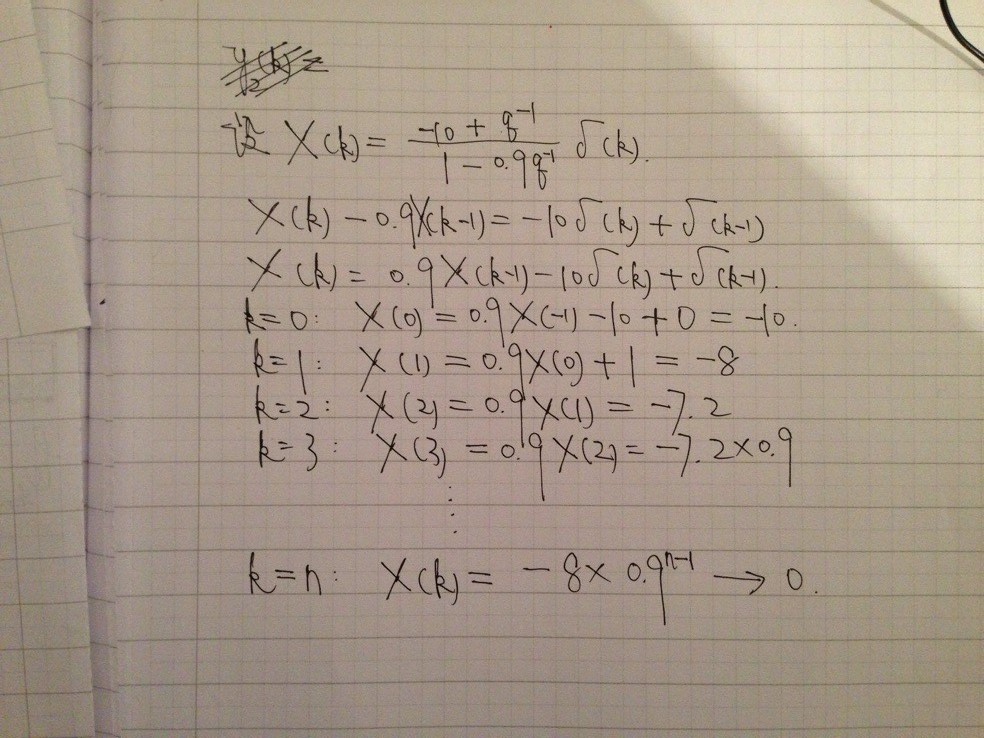 设 X(k) = (-10 + q^-1)/(1 - 0.9q^-1) δ(k).
X(k) - 0.9X(k-1) = -10δ(k) + δ(k-1)
X(k) = 0.9X(k-1) - 10δ(k) + δ(k-1).
k=0: X(0) = 0.9X(-1) - 10 + 0 = -10.
k=1: X(1) = 0.9X(0) + 1 = -8
k=2: X(2) = 0.9X(1) = -7.2
k=3: X(3) = 0.9X(2) = -7.2×0.9
⋮
k=n: X(k) = -8×0.9^n-1 → 0.